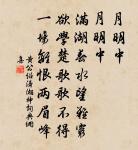 月明中
月明中
滿湖春水望難窮
欲學楚歌歌不得
一場離恨兩眉峰
黃公紹瀟湘神詞